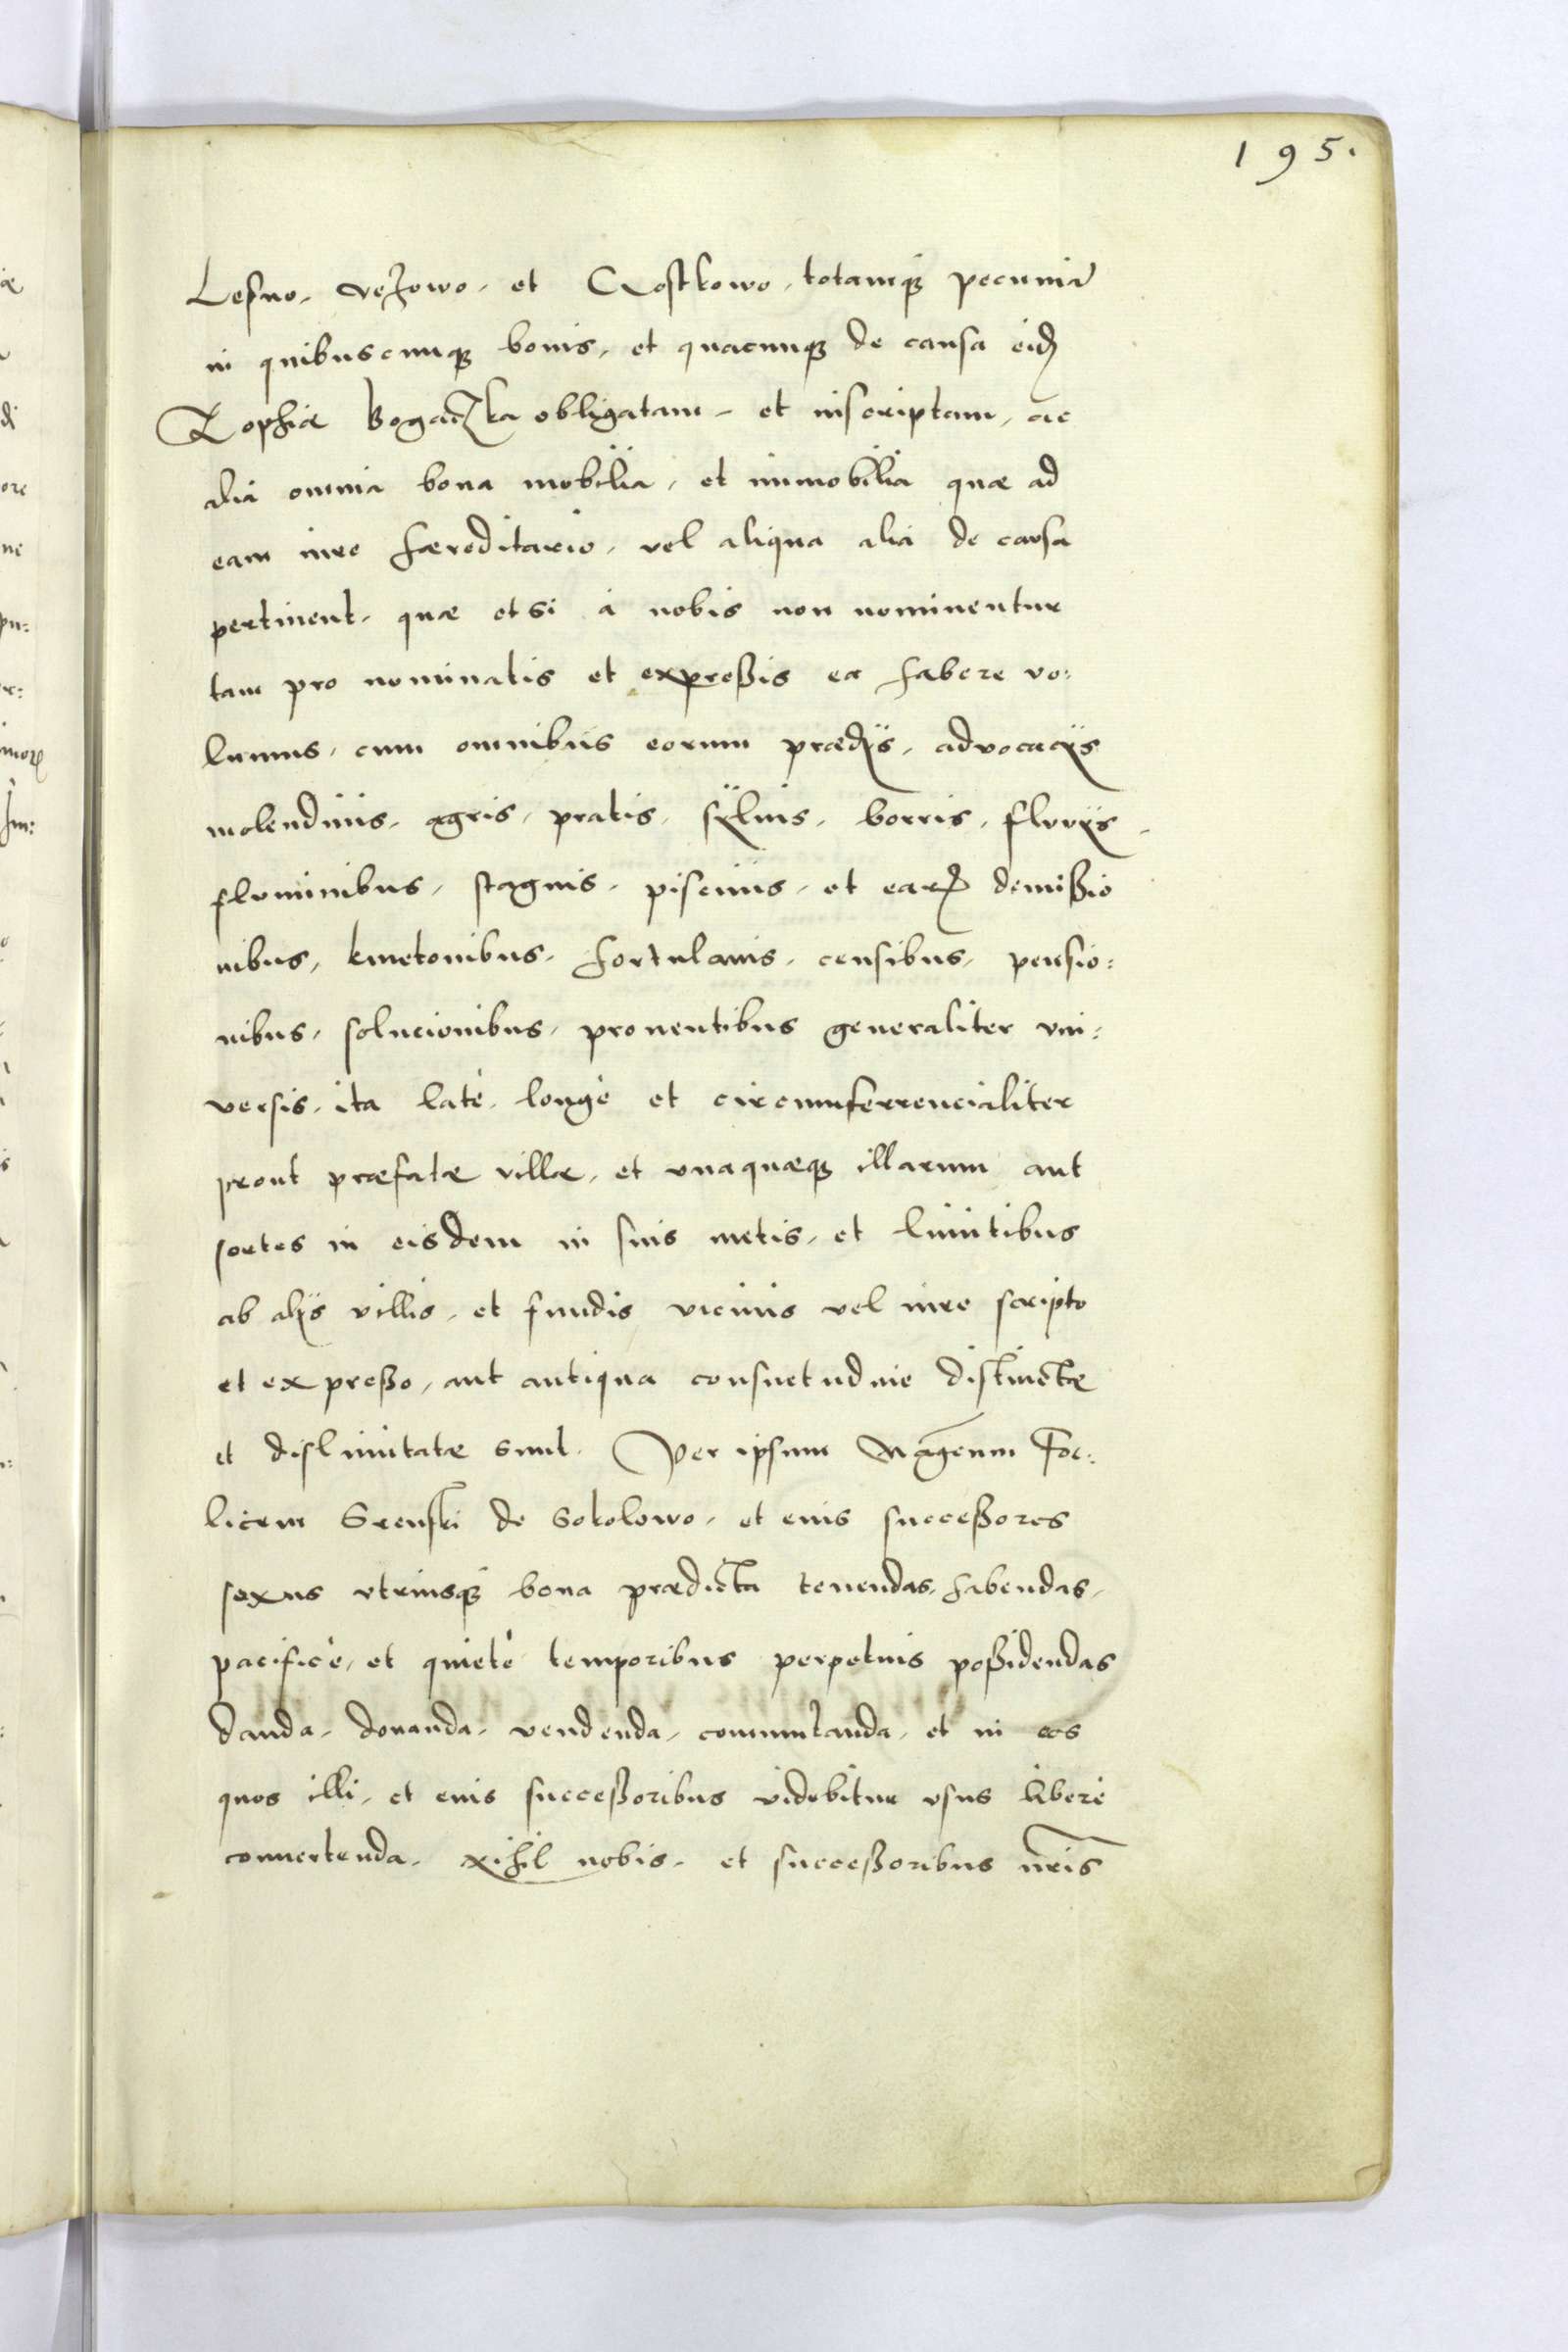 195.
Lesno, vezowo, et Costkowo, totamq̃ pecuniã
in quibuscunq̃ bonis, et quacunq̃ de causa eid̃
Zophiæ Bogaczka obligatam, et inscriptam, ac
alia omnia bona mobilia, et immobilia quæ ad
eam iure hæreditario, vel aliqua alia de causa
pertinent, quæ etsi à nobis non nominentur
tam pro nominatis et expreßis ea habere vo:
lumus, cum omnibus eorum prædijs, advocacijs
molendinis, agris, pratis, sÿluis, borris, fluvijs,
fluminibus, stagnis, piscinis, et earũ demißio
nibus, kmetonibus, hortulanis, censibus, pensio:
nibus, solucionibus, prouentibus generaliter vni:
versis, ita latè, longè et circumferrencialiter
prout præfatæ villæ, et vnaquæq̃ illarum aut
sortes in eisdem in suis metis, et limitibus
ab alijs villis, et fundis vicinis vel iure scripto
et expreßo, aut antiqua consuetudine distinctæ
et dislimitatæ sunt. Per ipsum Mag̃cum Foe:
licem Srenski de Sokolowo, et eius succeßores
sexus vtriusq̃ bona prædicta tenendas, habendas,
pacificè, et quietè temporibus perpetuis poßidendas
danda, donanda, vendenda, commutanda, et in eos
quos illi, et eius succeßoribus videbitur vsus liberè
conuertenda, nihil nobis, et succeßoribus nr̃is